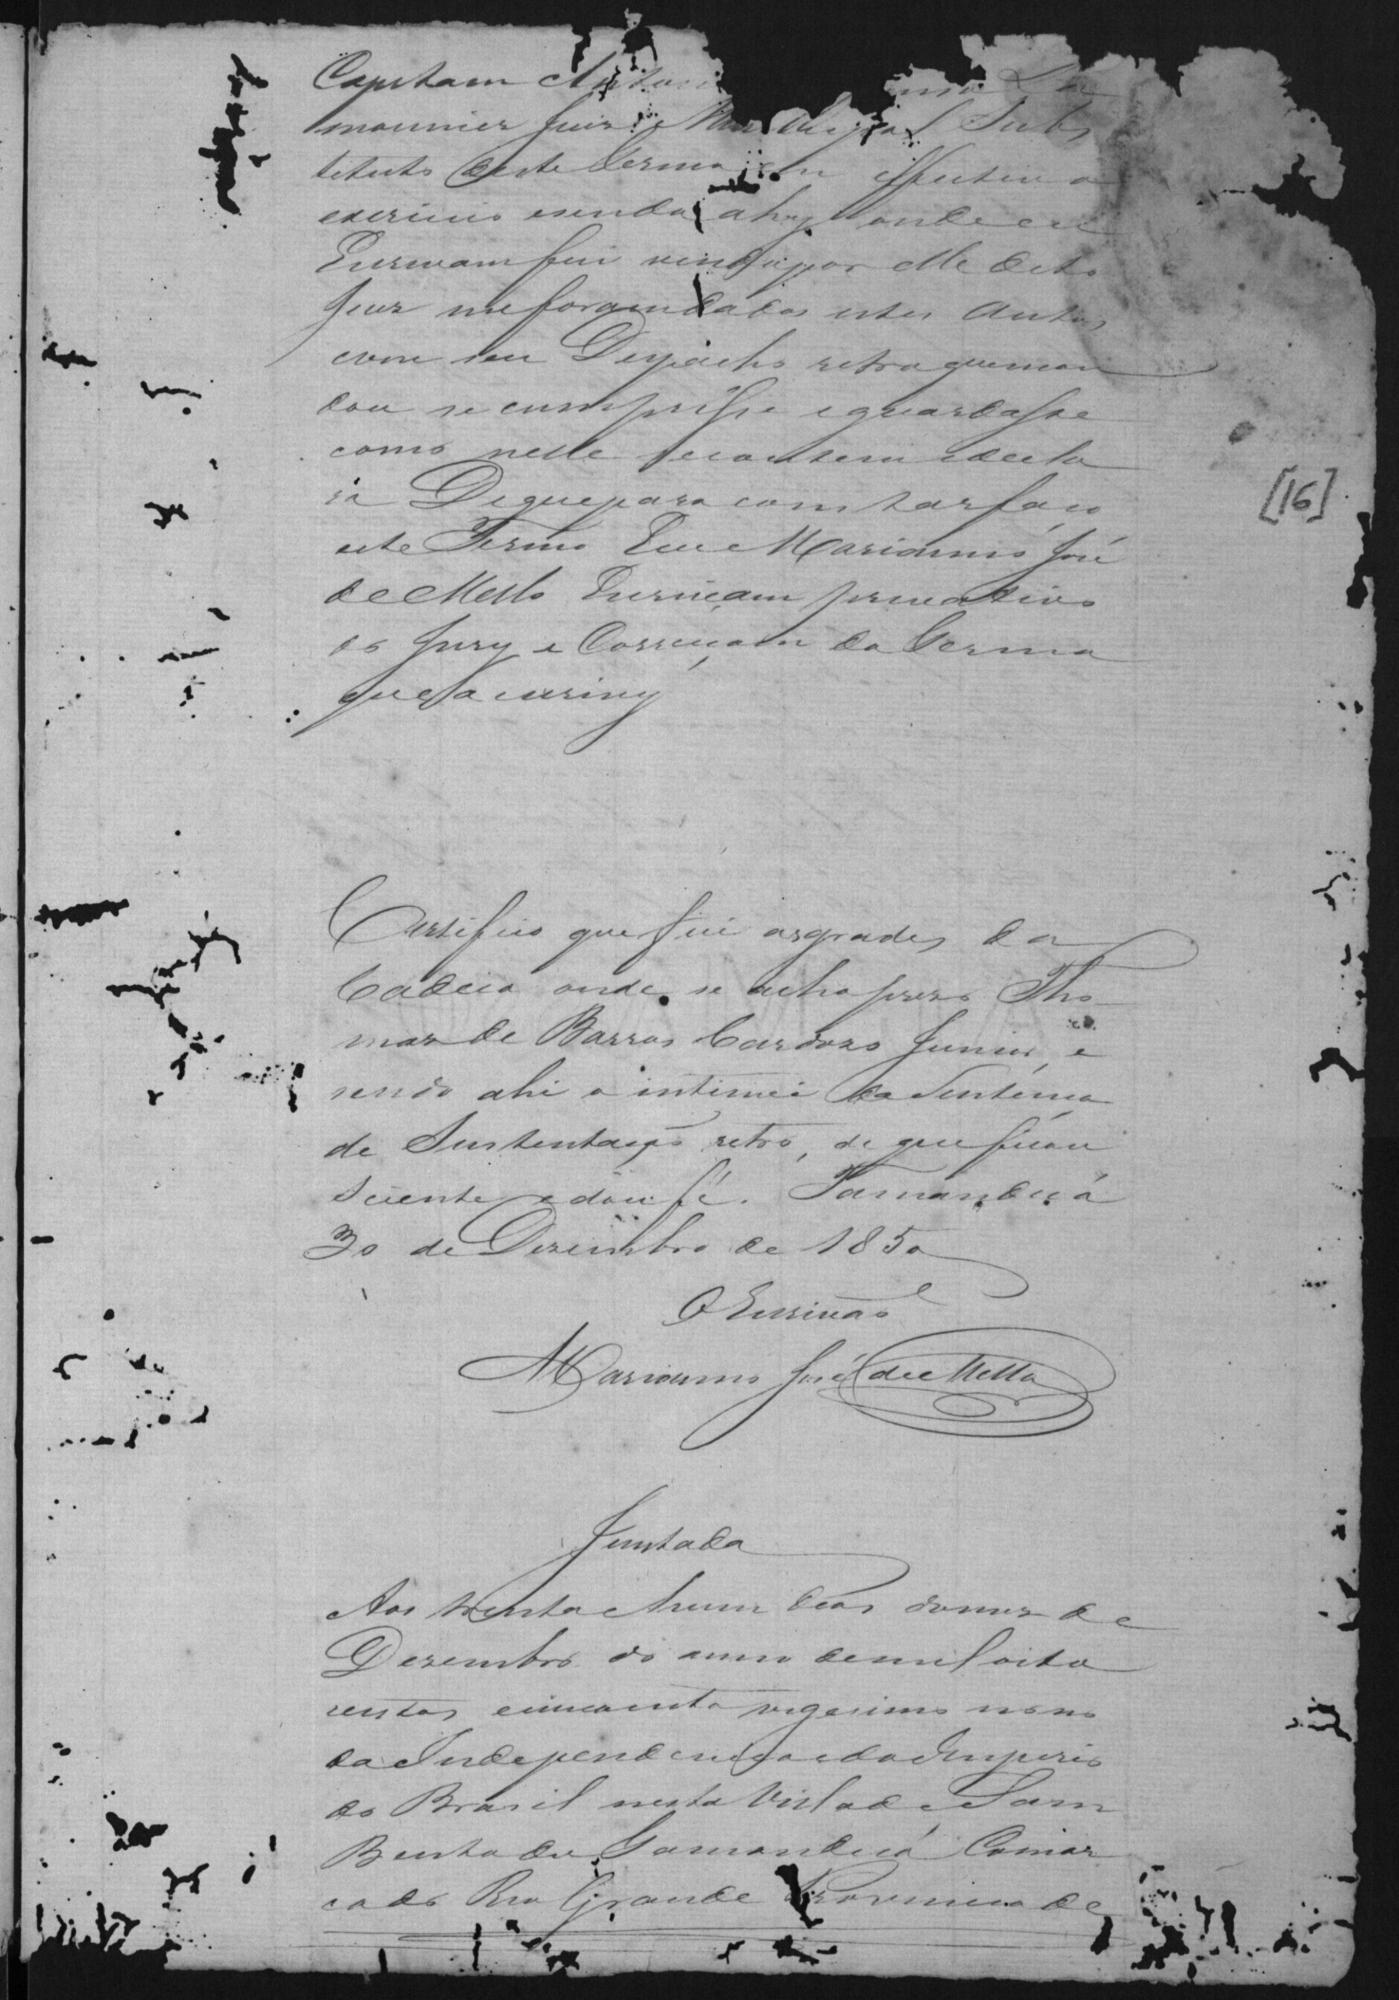 Capitam Anton
mounier Juiz Municipal Subs
tituto deste Termo em effectivo
exercicio esendo ahy onde eu
Escrivam fui vindo por elle dito
Juiz me foram dados estes Autos
com seu Despacho retro que man
dou se cumprisse e guardasse
como nelle secontem edecla
ra Deque para constar faço
este Termo Eu Marianno José
de Mello Escrivam privativo
do Jury e Correiçam do Termo
que o escrivy
[16]
Certifico que fui as grades da
Cadeia onde se acha preso Tho
maz de Barros Cardozo Junior, e
sendo ahi o intimei da Sentença
de Sustentação retro, de que ficou
sciente e dou fé. Tamanduá
30 de Dezembro de 1850
O Escrivão
Marianno José de Mello
Juntada
Aos trinta e hum dias do mez de
Dezembro do anno de mil oito
centos cincoenta vigesimo nono
da Independencia e do Imperio
do Brasil nesta Villa de Sam
Bento do Tamanduá Comar
ca do Rio Grande Provincia de